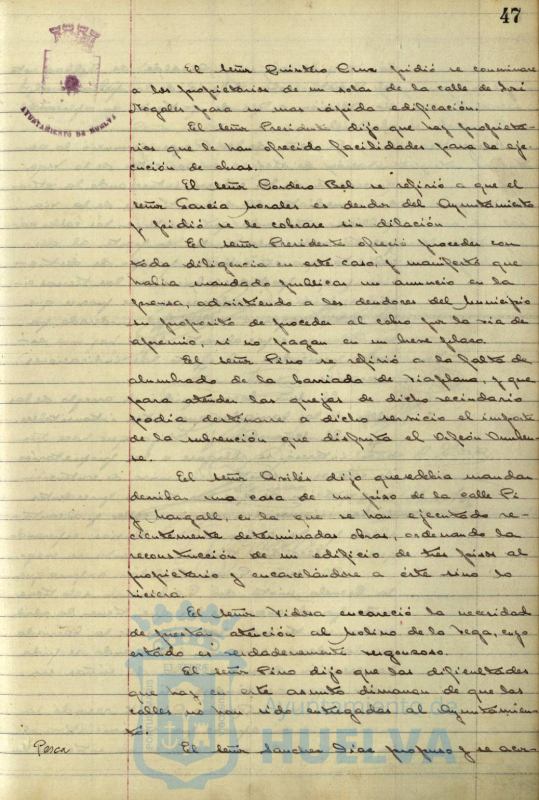 47
AYUNTAMIENTO DE HUELVA
El Señor Quintero Cruz pidió se conminase
a los propietarios de un solar de la calle de José
Nogales para su mas rápida edificación.
El Señor Presidente dijo que hay propieta-
rios que le han ofrecido facilidades para la eje-
cución de obras.
El Señor Cordero Bel se refirió a que el
Señor García Morales es deudor del Ayuntamiento
y pidió se le cobrase sin dilación
El Señor Presidente ofreció proceder con
toda diligencia en este caso, y manifestó que
habia mandado publicar un anuncio en la
prensa, advirtiendo a los deudores del Municipio
su proposito de proceder al cobro por la via de
apremio, si no pagan en un breve plazo.
El Señor Pino se refirió a la falta de
alumbrado de la barriada de Viaplana, y que
para atender las quejas de dicho vecindario
podia destinarse a dicho servicio el importe
de la subvención que disfruta el Orfeón Onuben-
se.
El Señor Avilés dijo que debia mandar
derribar una casa de un piso de la calle Pi
y Margall, en la que se han ejecutado re-
cientemente determinadas obras, ordenando la
reconstrucción de un edificio de tres pisos al
propietario y encarcelándose a éste sino lo
hiciera.
El Señor Vidosa encareció la necesidad
de prestar atención al Molino de la Vega, cuyo
estado es verdaderamente vergonzoso.
El Señor Pino dijo que las dificultades
que hay en este asunto dimanan de que las
calles no han sido entregadas al Ayuntamien-
to.
Pesca
El Señor Sanchez Dias propuso y se acor-
Ayuntamiento de
HUELVA